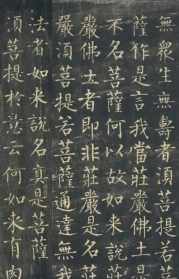 無眾生無壽者須菩提若菩
薩作是言我當莊嚴佛土是
不名菩薩何以故如來說莊
嚴佛土者即非莊嚴是名莊
嚴須菩提若菩薩通達無我
法者如來說名真是菩薩
須菩提於意云何如來有肉